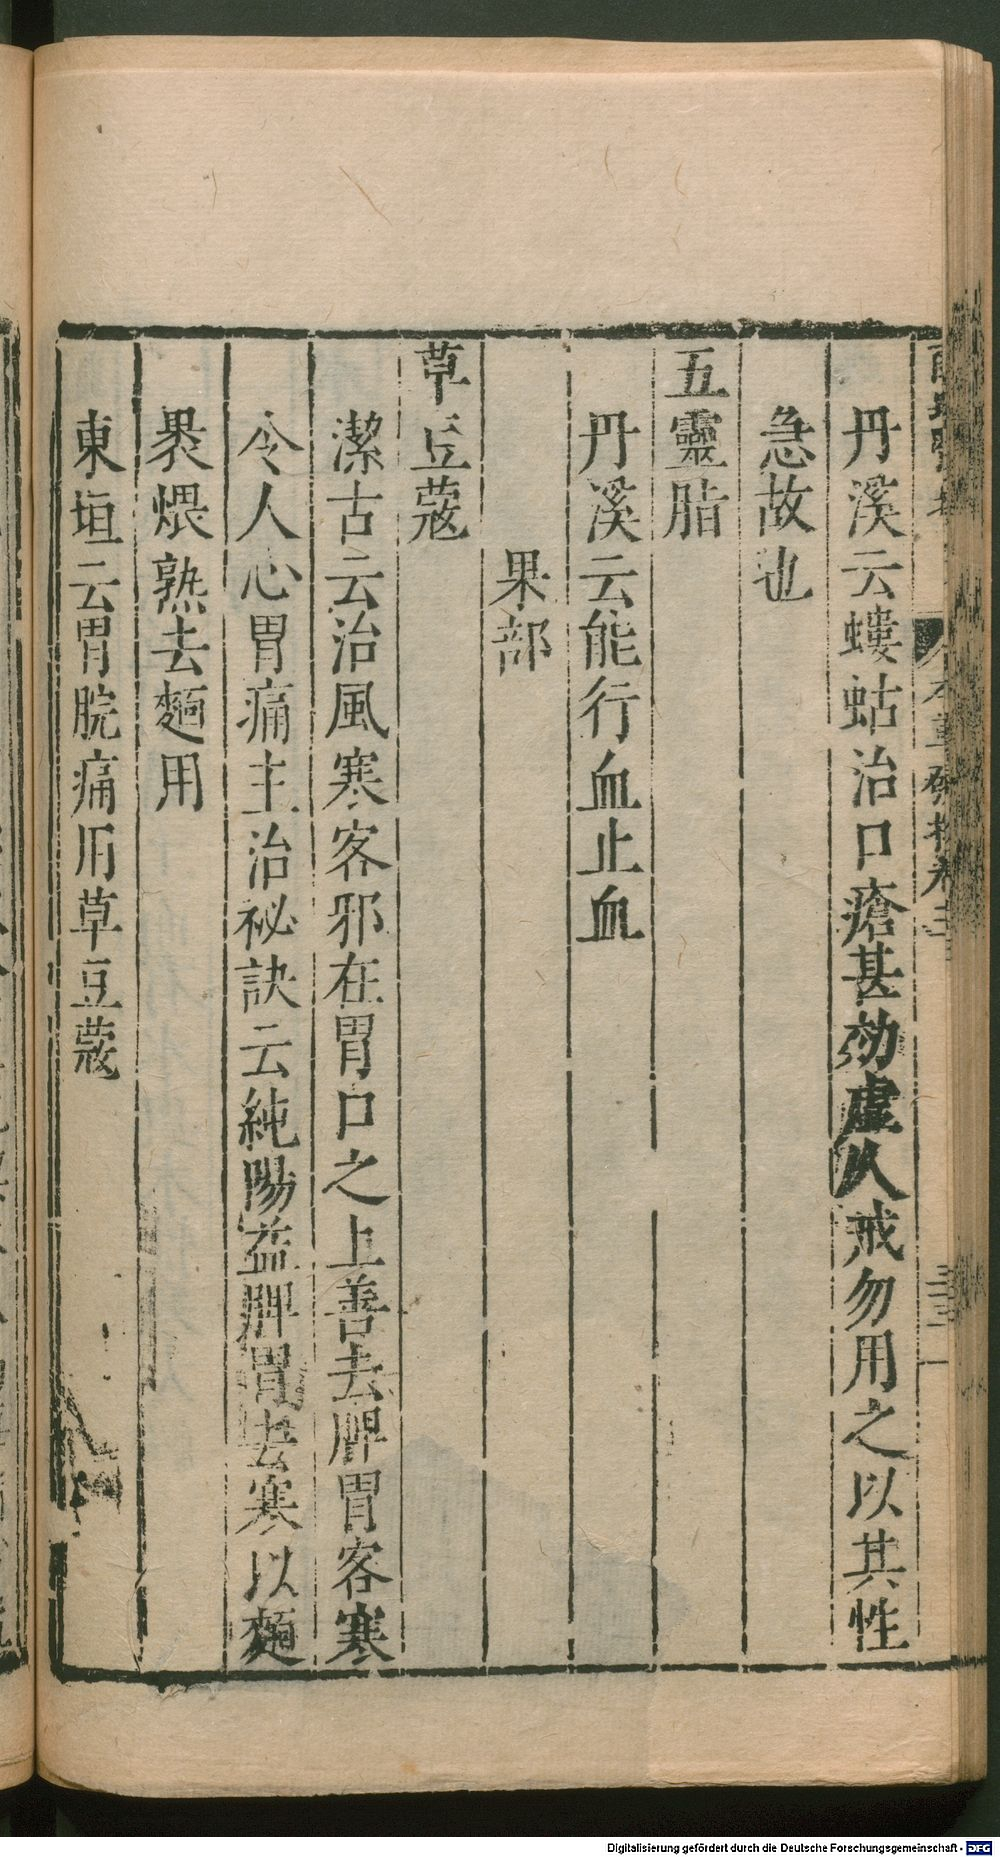 丹溪云螻蛄治口瘡甚効虛人戒勿用之以其性
急故也
五靈脂
丹溪云能行血止血
果部
草豆蔻
潔古云治風寒客邪在胃口之上善去脾胃客寒
令人心胃痛主治祕訣云純陽益脾胃去寒以麵
裹煨熟去麵用
東垣云胃脘痛用草豆蔻
Digitalisierung gefördert durch die Deutsche Forschungsgemeinschaft - DFG